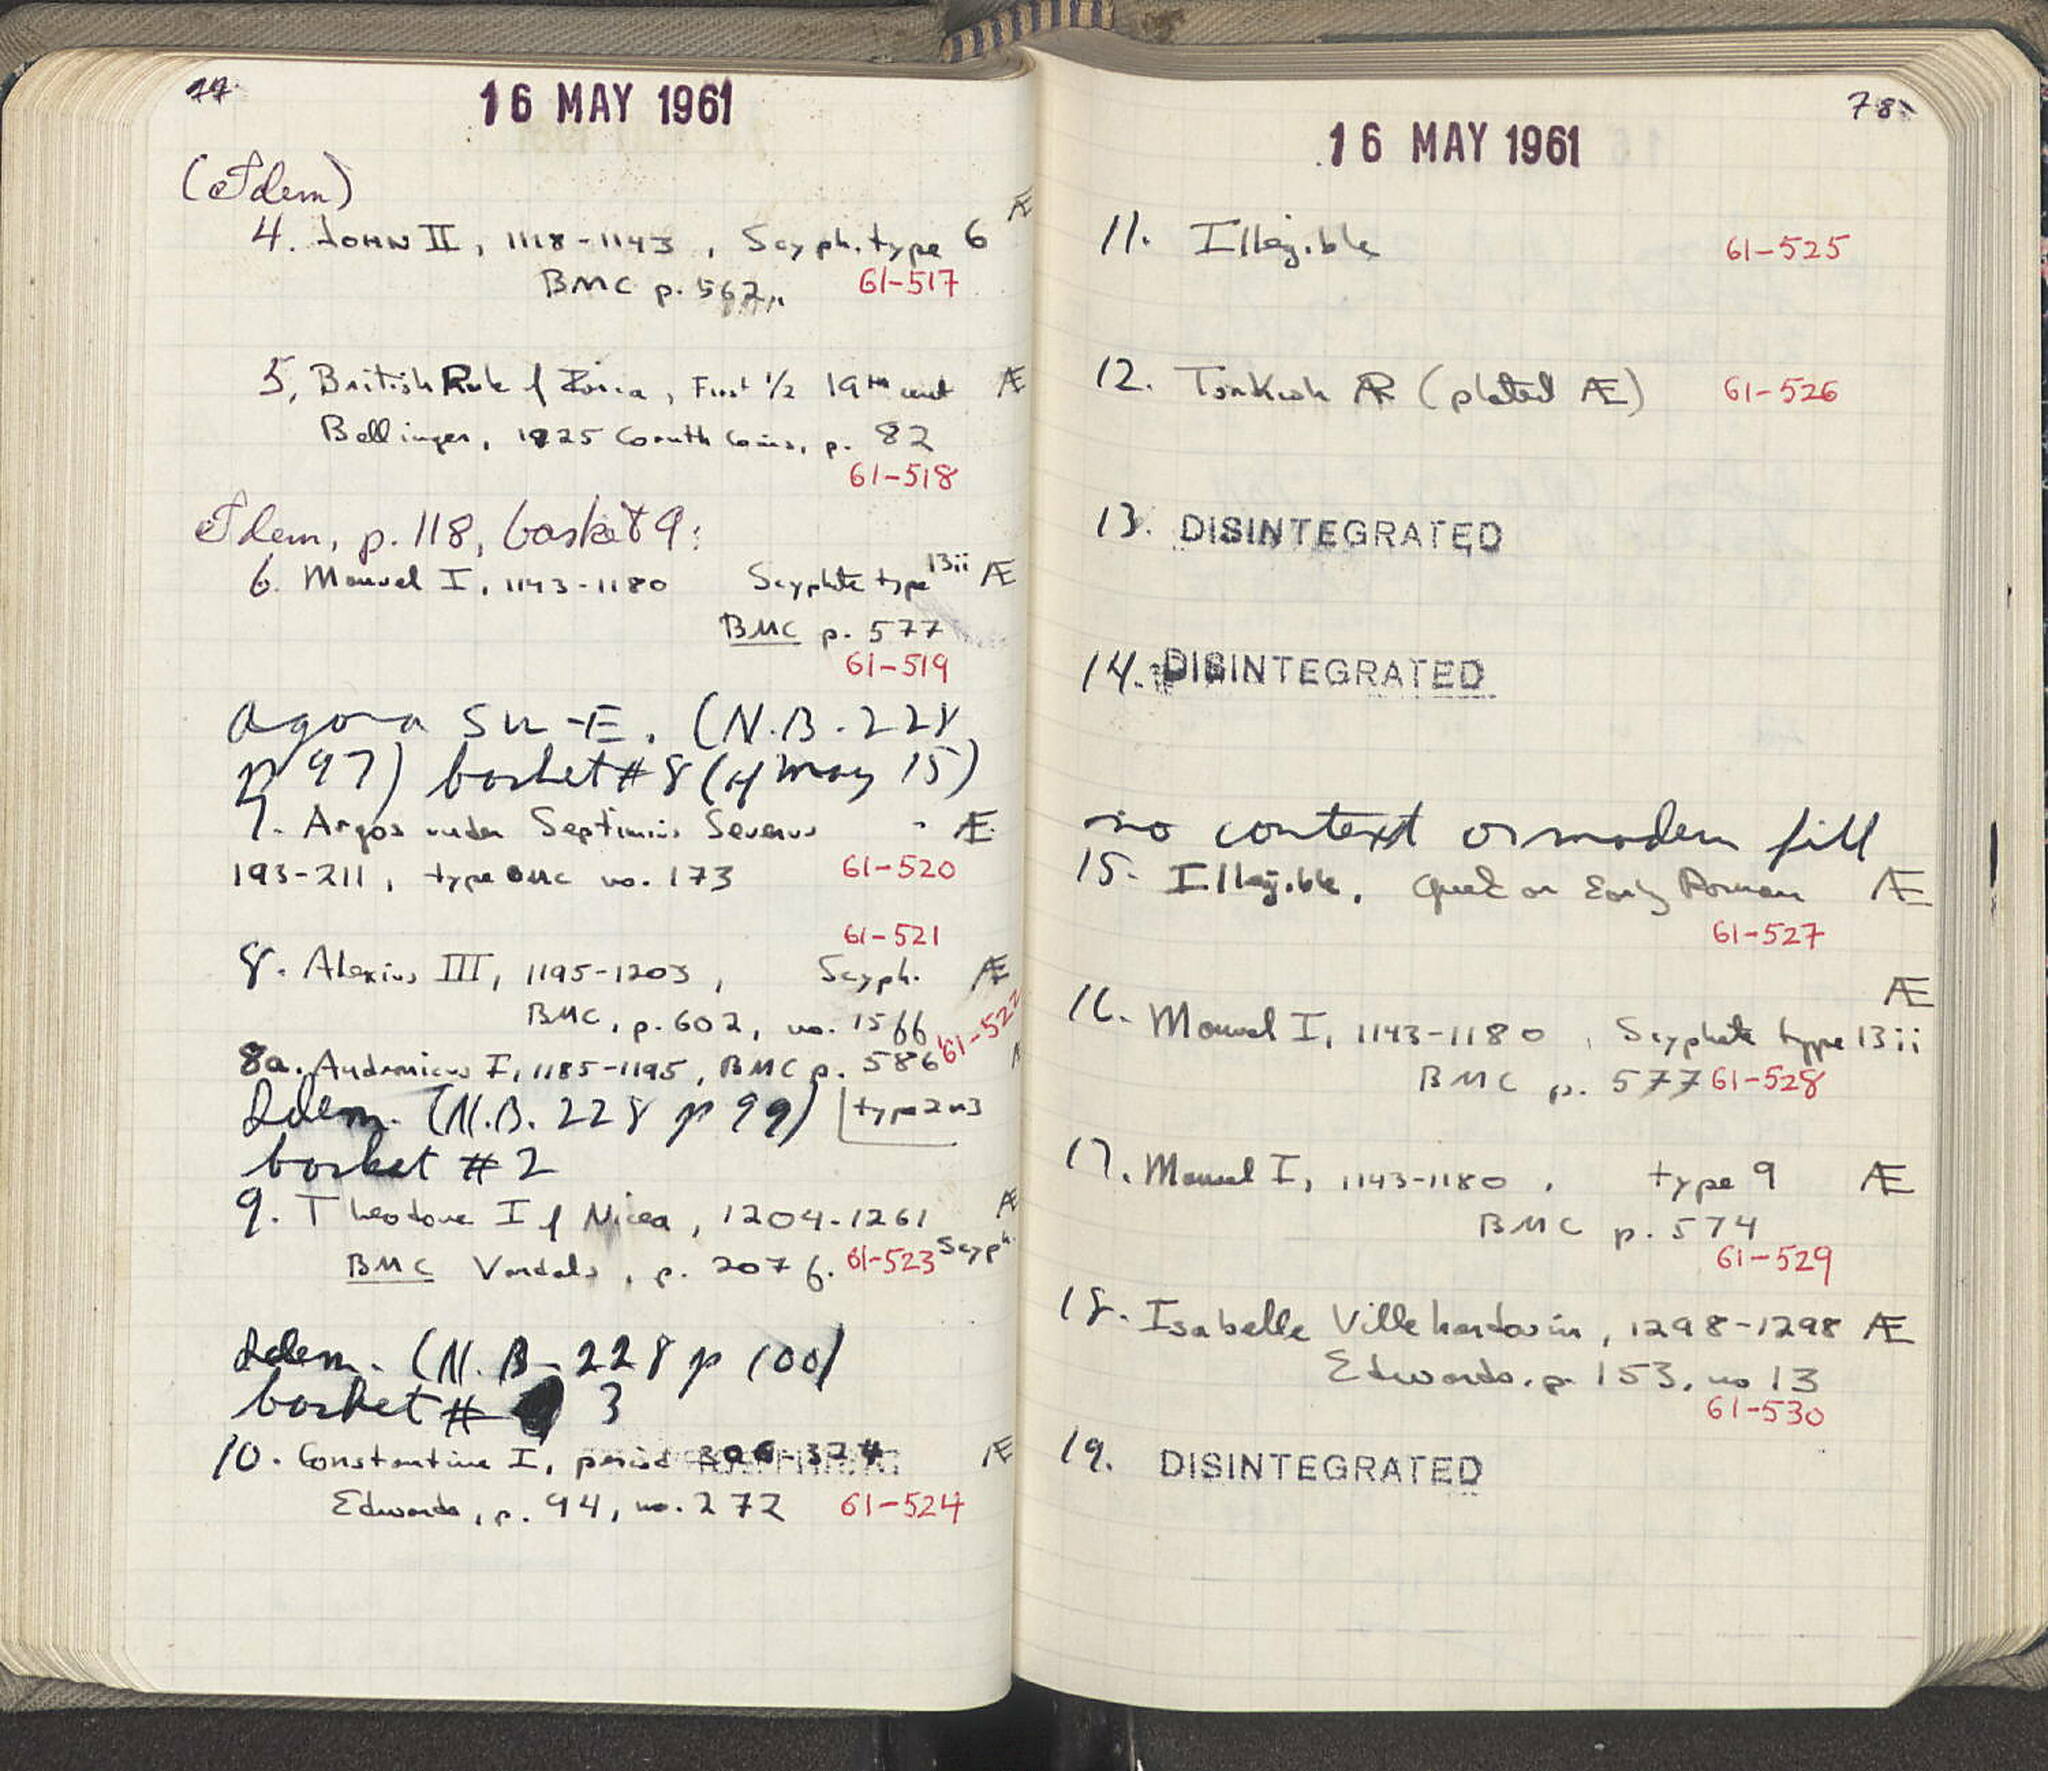 77
16 MAY 1961
(Idem)
4. JOHN II, 1118-1143, Scyph. type 6 Æ
BMC p. 562
61-517
5. British Rule of Ionia, First 1/2 19th cent Æ
Bellinger, 1925 Corinth Coins, p. 82
61-518
Idem, p. 118, basket 9:
6. Manuel I, 1143-1180 Scyphate type 13ii Æ
BMC p. 577
61-519
Agora SW-E. (N.B. 228
p 97) basket #8 (of May 15)
7. Argos under Septimius Severus Æ
193-211, type BMC no. 173 61-520
61-521
8. Alexius III, 1195-1203, Scyph. Æ
BMC, p. 602, no. 15ff
8a. Andronicus I, 1185-1195, BMC p. 586 61-522
type 2 or 3
Idem. (N.B. 228 p 99)
basket #2
9. Theodore I of Nicea, 1204-1261 Æ
BMC Vandals, p. 207 f. 61-523 Scyph.
Idem. (N.B. 228 p 100)
basket # 3
10. Constantine I, period 306-324 Æ
Edwards, p. 94, no. 272 61-524
78
16 MAY 1961
11. Illegible 61-525
12. Turkish AR (plated Æ) 61-526
13. DISINTEGRATED
14. DISINTEGRATED
no context or modern fill
15. Illegible. Greek or Early Roman Æ
61-527
16. Manuel I, 1143-1180, Scyphate type 13ii Æ
BMC p. 577 61-528
17. Manuel I, 1143-1180, type 9 Æ
BMC p. 574
61-529
18. Isabelle Villehardouin, 1298-1298 Æ
Edwards, p. 153, no 13
61-530
19. DISINTEGRATED